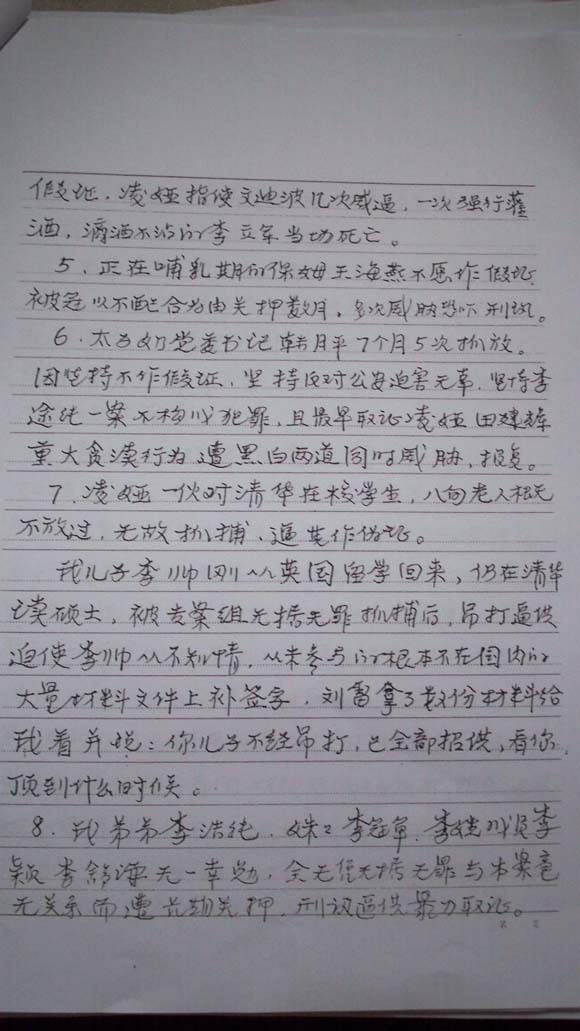 假证，凌娅指使文迪波几次威逼，一次强行灌
酒，滴酒不沾的李立军当场死亡。
5、正在哺乳期的保姆王海燕不愿作假证
被冠以不配合为由关押数月，多次威胁恐吓刑讯。
6、太子奶党委书记韩月平7个月5次抓放。
因坚持不作假证，坚持反对公安迫害无辜，坚持李
途纯一案不构成犯罪，且最早取证凌娅田建辉
重大贪渎行为遭黑白两道同时威胁，报复。
7、凌娅一伙对清华在校学生，八旬老人都
不放过，无故抓捕、逼其作伪证。
我儿子李帅刚从英国留学回来，仍在清华
读硕士，被专案组无据无罪抓捕后，吊打逼供
迫使李帅从不知情，从未参与的根本不在国内的
大量材料文件上补签字，刘雷拿了数份材料给
我看并说：你儿子不经吊打，已全部招供，看你
顶到什么时候。
8、我弟弟李浩纯、妹妹李冠军、李 李
颖李 无一幸免，全无 无据无罪与本案毫
无关系而遭长期关押、刑讯逼供暴力取证。